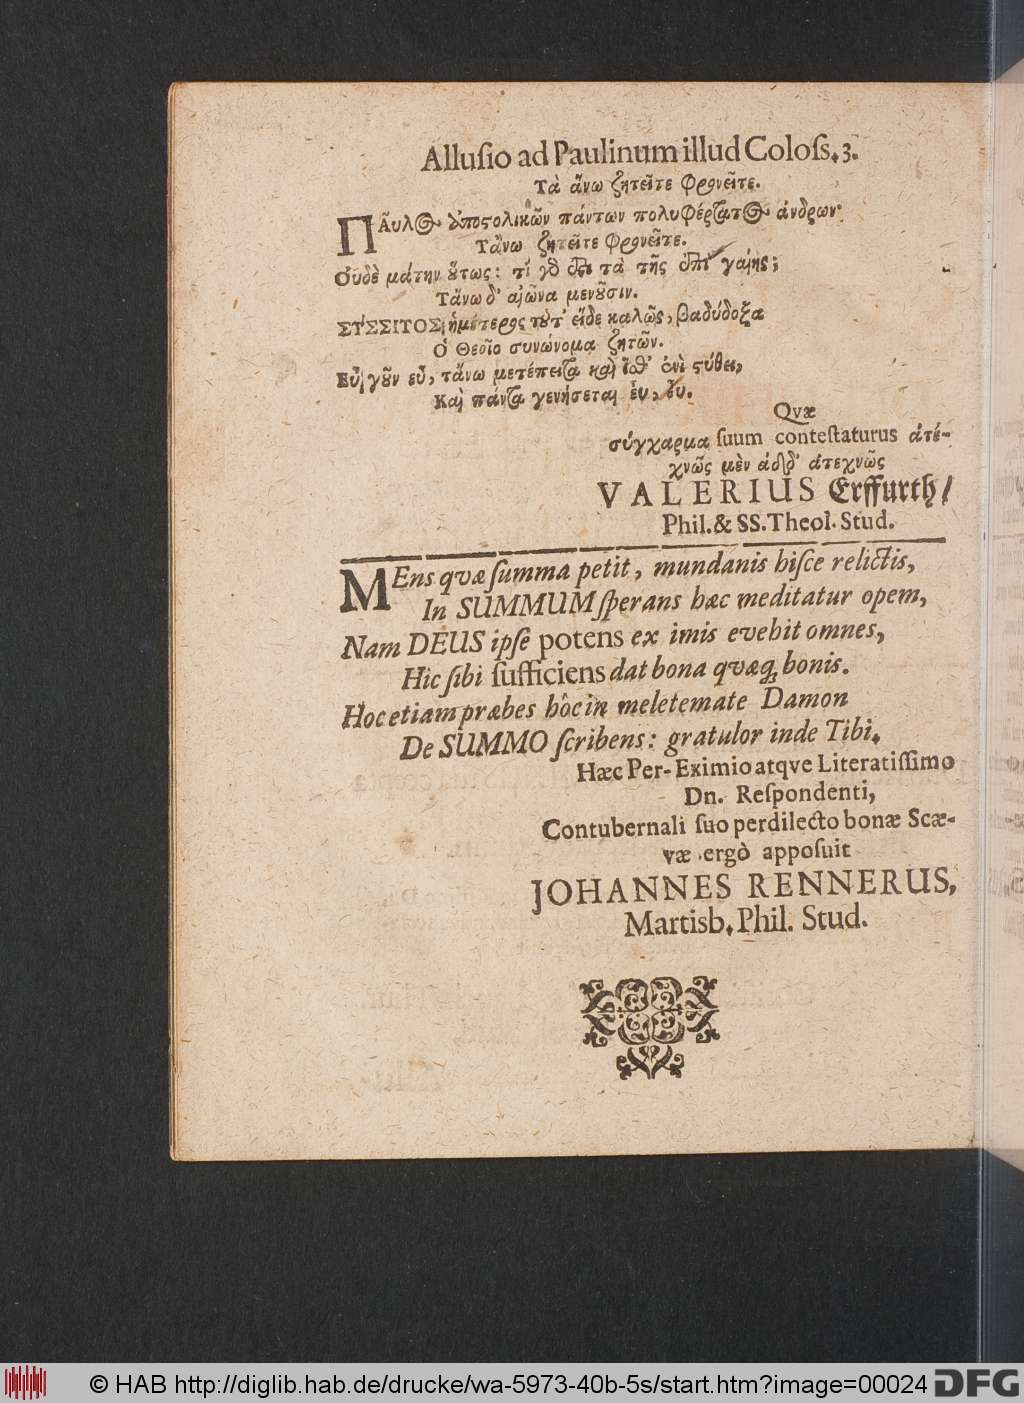 Alluſio ad Paulinum illud Coloſs. 3.
Τὰ ἄνω ζητεῖτε φρονεῖτε.
ΠΑῦλος ἀποςολικῶν πάντων πολυφέρτατος ἀνδρων·
Τἄνω ζητεῖτε φρονεῖτε.
Οὐδὲ μάτην ὅτως: τί γὸ ὅτι τὰ τῆς ἐπὶ γαίης;
Τἄνω δ' αἰῶνα μενοῦσιν.
ΣΥΣΣΙΤΟΣ ἡμέτερος τοῦτ' εἶδε καλῶς, βαθύδοξα
Ὁ Θεοῖο συνώνομα ζητῶν.
Εὖ γοῦν εὖ, τἄνω μετέπειτα καὶ ἐνὶ ςύθει,
Καὶ πάντα γενήσεται εὐ, εὐ.
Qvæ
σύγχαρμα ſuum conteſtaturus ἀτέ-
χνῶς μὲν ἀτεχνῶς
VALERIUS Erffurth/
Phil. & SS. Theol. Stud.
MEns qvæ ſumma petit, mundanis hiſce relictis,
In SUMMUM ſperans hæc meditatur opem,
Nam DEUS ipſe potens ex imis evehit omnes,
Hic ſibi ſufficiens dat bona qvæq; bonis.
Hoc etiam præbes hôc in meletemate Damon
De SUMMO ſcribens: gratulor inde Tibi.
Hæc Per-Eximio atqve Literatiſſimo
Dn. Reſpondenti,
Contubernali ſuo perdilecto bonæ Scæ-
væ ergò appoſuit
JOHANNES RENNERUS,
Martisb. Phil. Stud.
© HAB http://diglib.hab.de/drucke/wa-5973-40b-5s/start.htm?image=00024
DFG